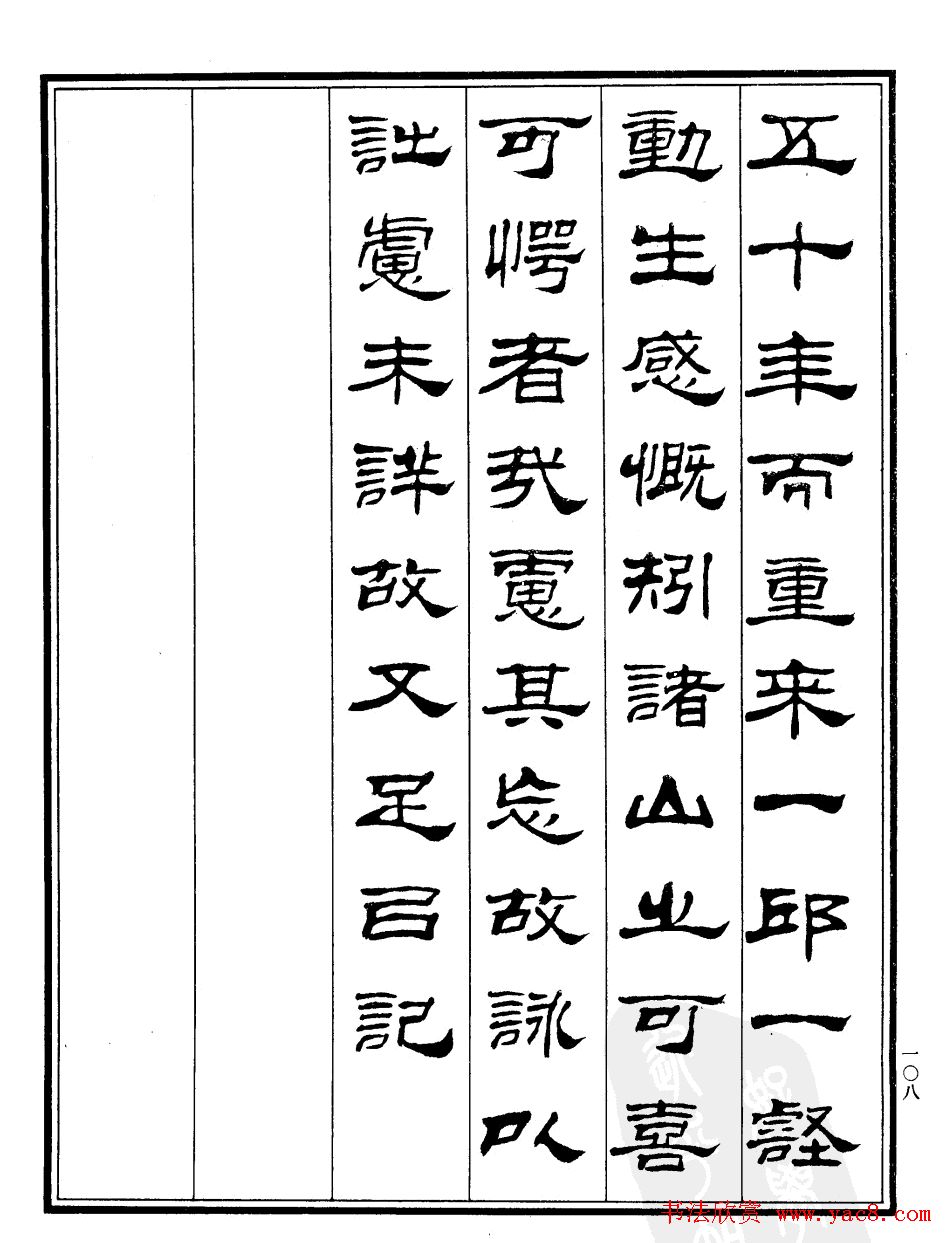 五十年而重来一邱一壑
動生感慨矧諸山之可喜
可愕者哉慮其忘故詠以
誌慮未詳故又足以記
一〇八
书法欣赏 www.yac8.com